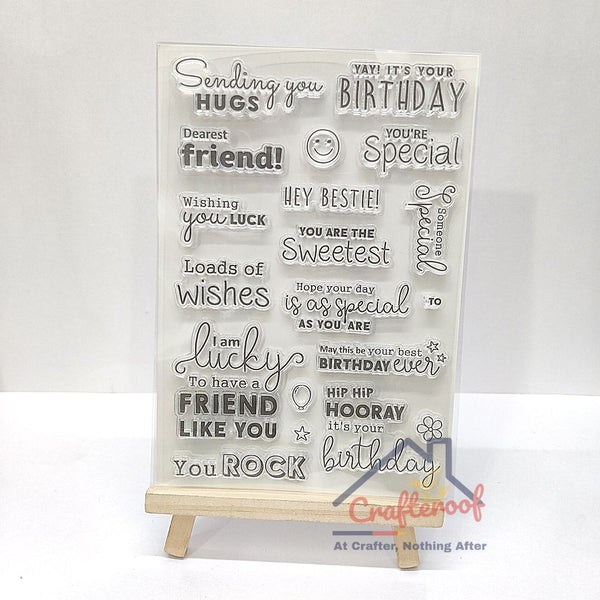 Sending you
HUGS
YAY! IT'S YOUR
BIRTHDAY
Dearest
friend!
YOU'RE
Special
Wishing
you LUCK
HEY BESTIE!
Someone
Special
YOU ARE THE
Sweetest
Loads of
wishes
Hope your day
is as special
AS YOU ARE
TO
I am
lucky
To have a
FRIEND
LIKE YOU
May this be your best
BIRTHDAY ever
HIP HIP
HOORAY
it's your
birthday
You ROCK
Crafteroof
At Crafter, Nothing After